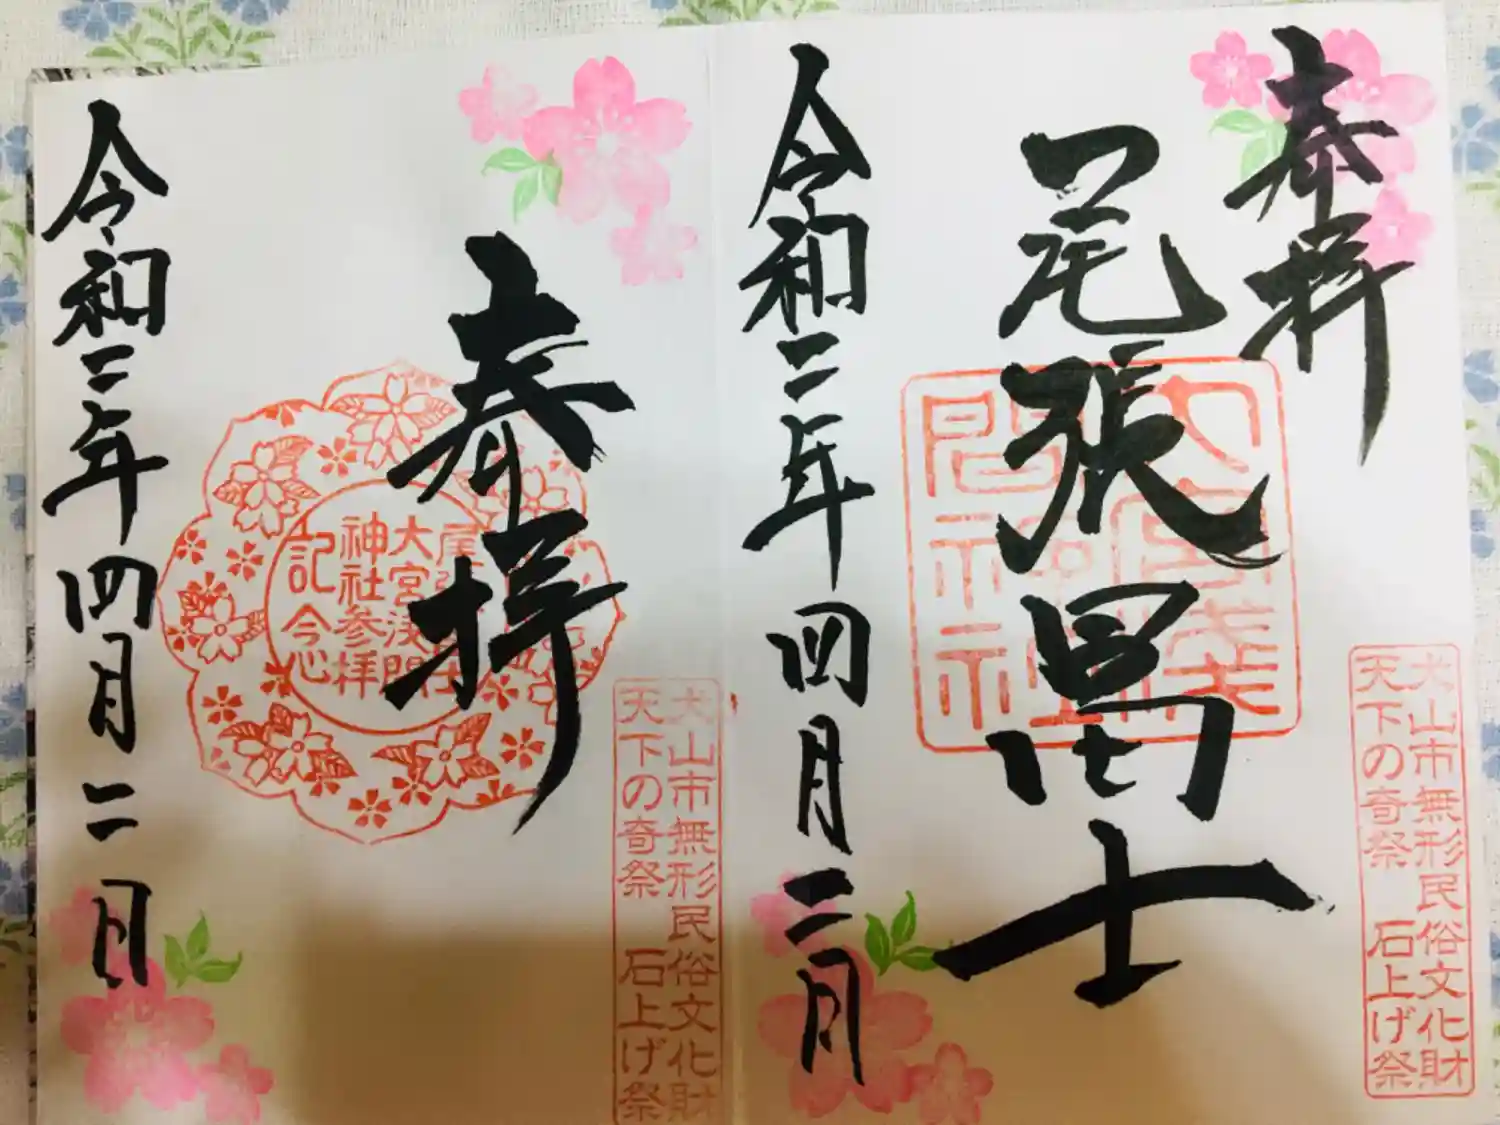 奉拝
尾張冨士
大宮浅
間神社
犬山市無形民俗文化財
天下の奇祭 石上げ祭
令和二年四月二日
奉拝
尾張冨士
大宮浅間
神社参拝
記念
犬山市無形民俗文化財
天下の奇祭 石上げ祭
令和二年四月二日